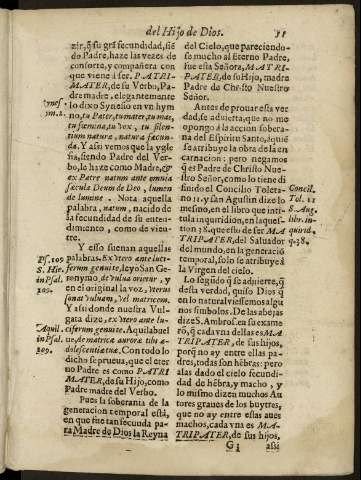 del Hijo de Dios. 11
zir, q̃ su grã fecundidad, siẽ
do Padre, haze las vezes de
consorte, y compañera con
que viene à ser. PATRI-
MATER, de su Verbo, Pa-
dre madre. elegantemente
lo dixo Synesio en vn hym
no, tu Pater, tu mater, tu mas,
tu fœmina, tu vox, tu silen-
tium natura, natura fæcun-
da. Y assi vemos que la ygle
sia, siendo Padre del Ver-
bo, le haze como Madre, &
ex Patre natum ante omnia
sæcula Deum de Deo, lumen
de lumine. Nota aquella
palabra, natum, nacido de
la fecundidad de su enten-
dimiento, como de vien-
tre.
Y esso suenan aquellas
palabras. Ex vtero ante luci-
ferum genuite, leyo San Ge-
ronymo de vulua orietur, y
en el original la voz, vterus
sonat vuluam, vel matricem.
Y assi donde nuestra Vul-
gata dixo, ex vtero ante lu-
ciferum genuite, Aquila buel
ue, de matrice auroræ tibi a-
dolescentiatuæ. Con todo lo
dicho se prueua, que el eter
no Padre es como PATRI
MATER, de su Hijo, como
Padre madre del Verbo.
Pues la soberanta de la
generacion temporal està,
en que fue tan fecunda pa-
ra Madre de Dios la Reyna
Psf. 109
S. Hie.
in Psal.
109.
Aquil.
in Psal.
109.
del Cielo, que pareciendo-
se mucho al Eterno Padre,
fue essa Señora, MATRI-
PATER, de su Hijo, madre
Padre de Christo Nuestro
Señor.
Antes de prouar esta ver
dad, se aduierta, que no me
opongo à la accion sobera-
na del Espiritu Santo, à quiẽ
se atribuye la obra de la en
carnacion: pero negamos
q̃ es Padre de Christo Nue-
stro Señor, como lo tiene di
finido el Concilio Toleta-
no 11. y san Agustin dize lo
mesmo, en el libro que inti-
tula inquiridion, en la ques-
tion 38. que esto de ser MA
TRIPATER, del Saluador
del mundo, en la generació
temporal, solo se atribuye à
la Virgen del cielo.
Lo segũdo q̃ se aduierte, q̃
desta verdad, quiso Dios q̃
en lo natural viessemos algu
nos simbolos. De las abejas
dize S. Ambros. en su exame
rõ, q̃ cada vna dellas es MA-
TRIPATER, de sus hijos,
porq̃ no ay entre ellas pa-
dres, todas son hẽbras: pero
alas dado el cielo fecundi-
dad de hẽbra, y macho, y
lo mismo dizen muchos Au
tores graues de los buytres,
que no ay entre essas aues
machos, cada vna es MA-
TRIPATER, de sus hijos,
Concil.
Tol. 11
S. Aug.
quirid.
q. 38.
G j assi